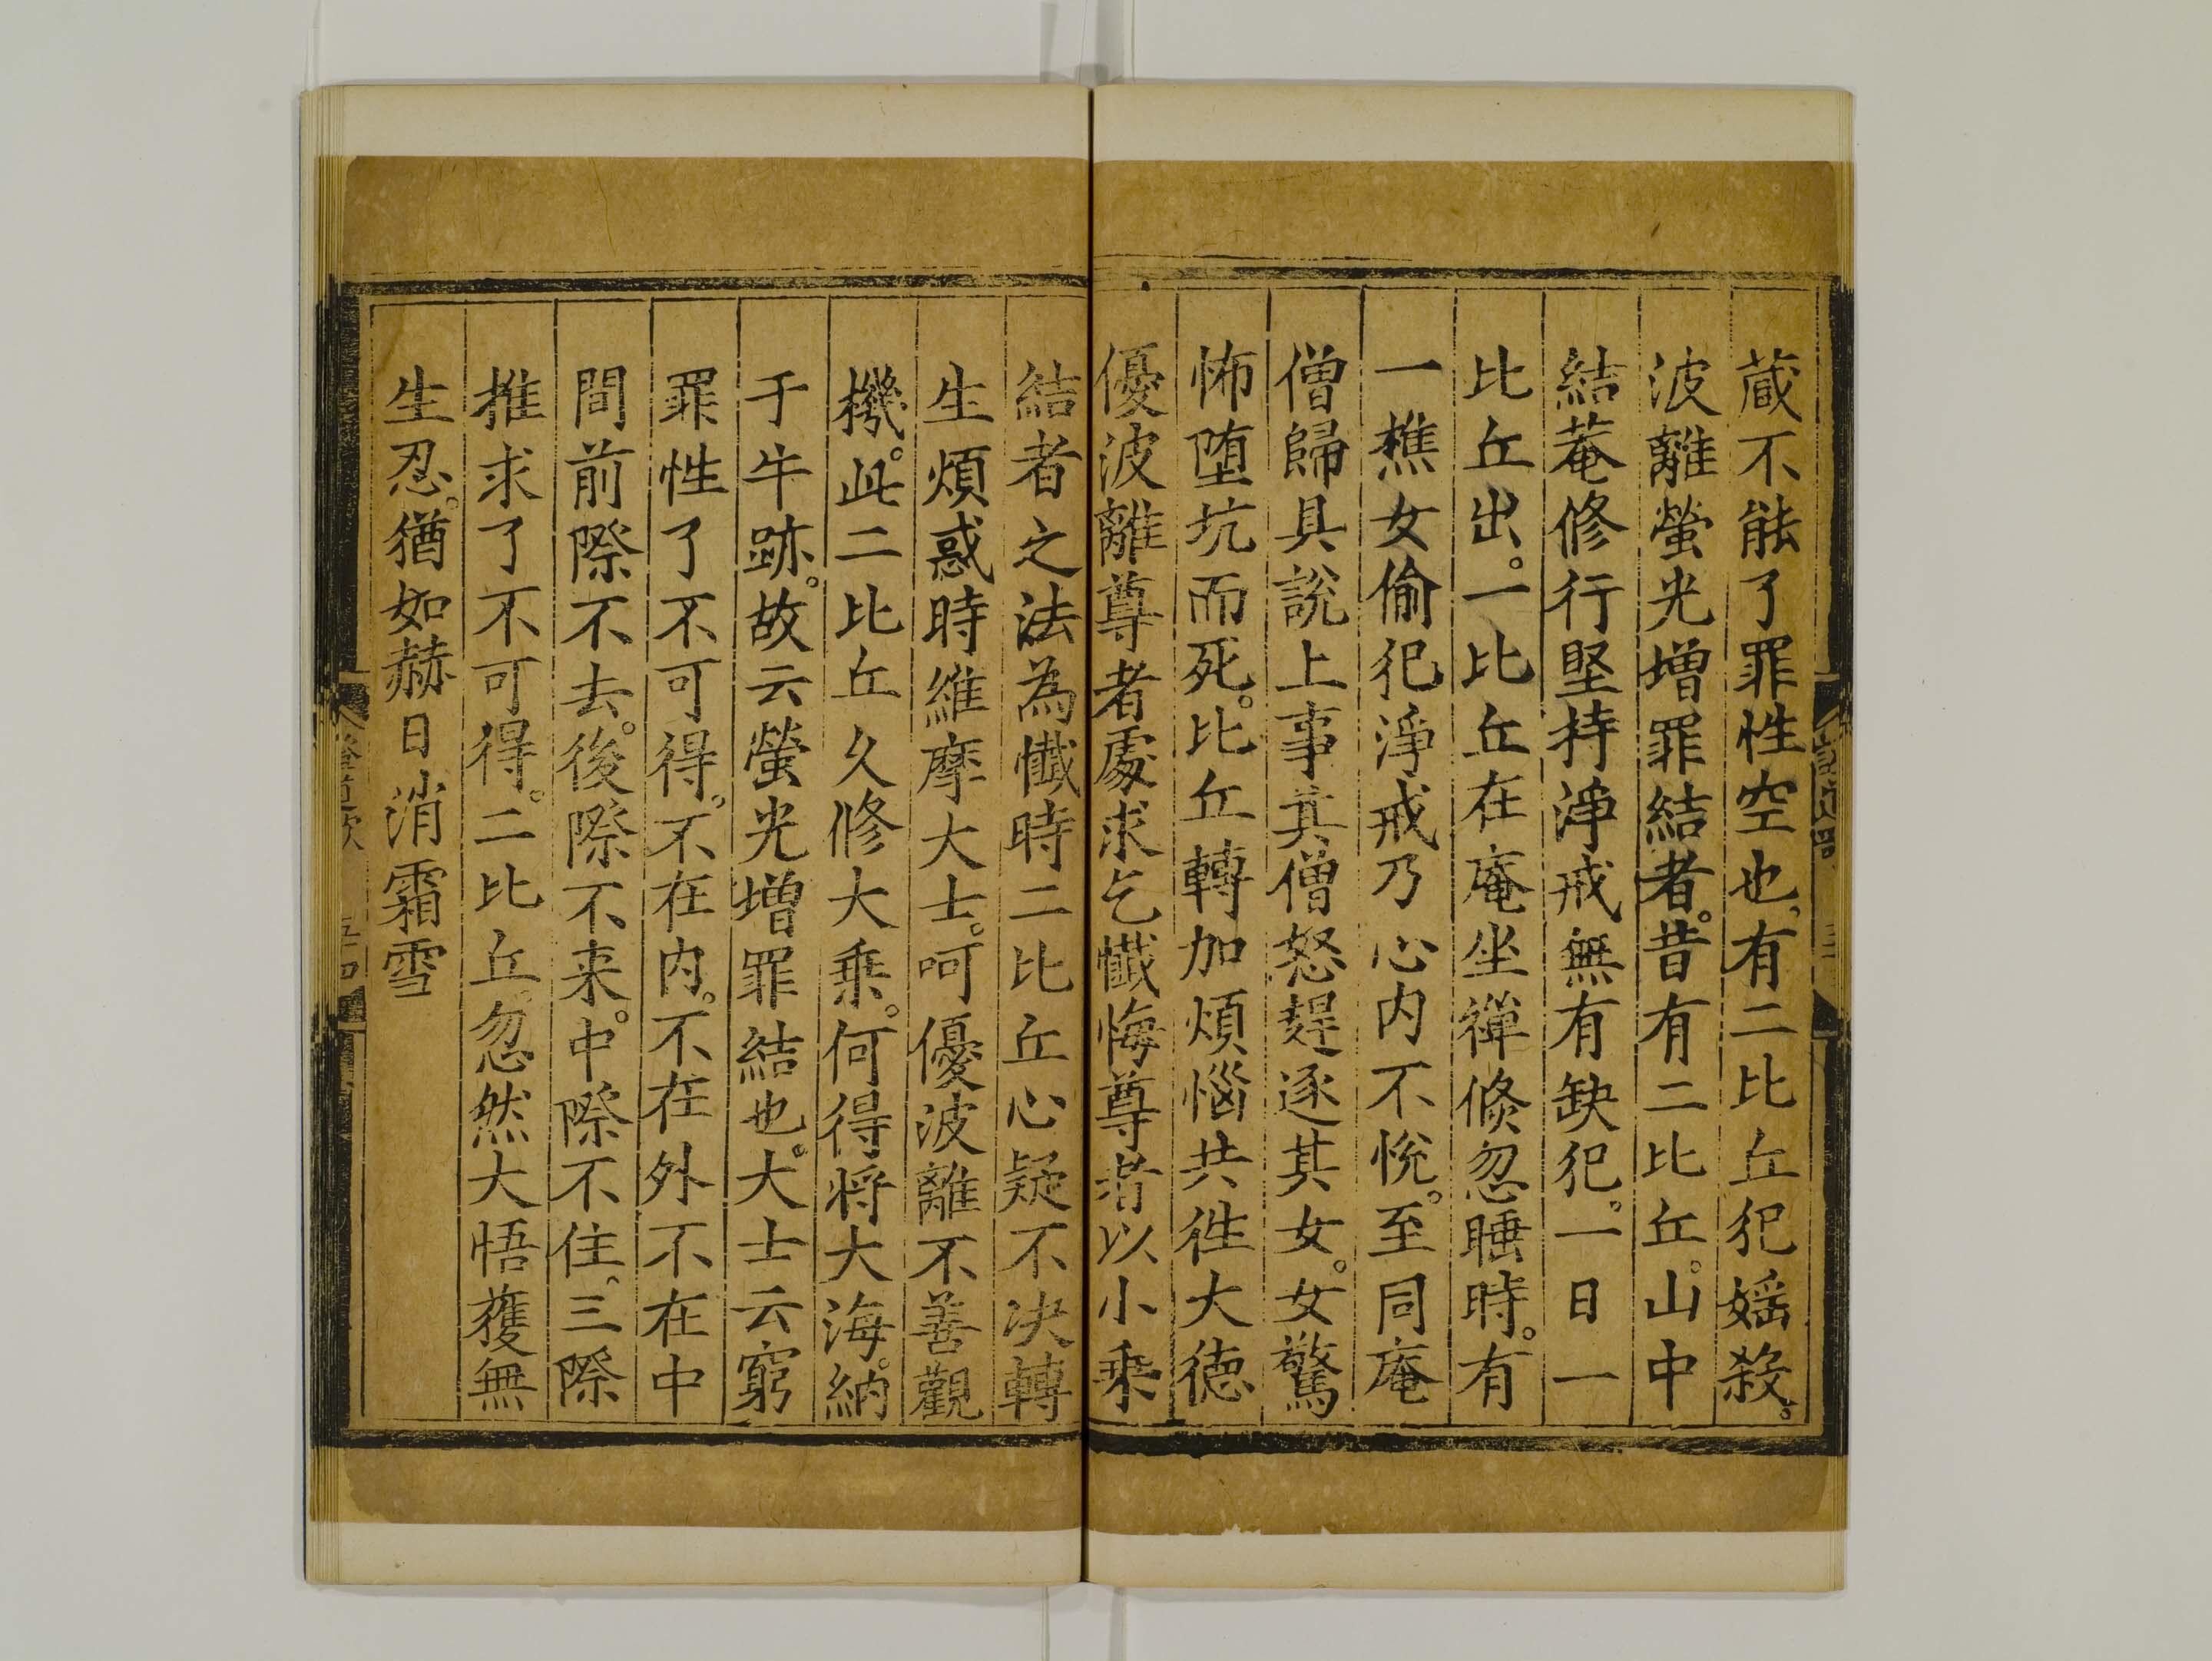 蔵不能了罪性空也。有二比丘犯婬殺。
波離螢光増罪結者。昔有二比丘。山中
結菴修行堅持淨戒無有缺犯。一日一
比丘出。一比丘在庵坐禪倐忽睡時。有
一樵女偷犯淨戒乃心内不悅。至同庵
僧歸具說上事其僧怒趕逐其女。女驚
怖堕坑而死。比丘轉加煩惱共徃大德
優波離尊者處求乞懺悔尊者以小乗
結者之法為懺時二比丘心疑不决轉
生煩惑時維摩大士。呵優波離不善觀
機。此二比丘久修大乗。何得将大海。納
于牛跡。故云螢光增罪結也。大士云窮
罪性了不可得。不在内。不在外不在中
間前際不去。後際不来。中際不住。三際
推求了不可得。二比丘。忽然大悟獲無
生忍。猶如赫日消霜雪
證道歌 五十四